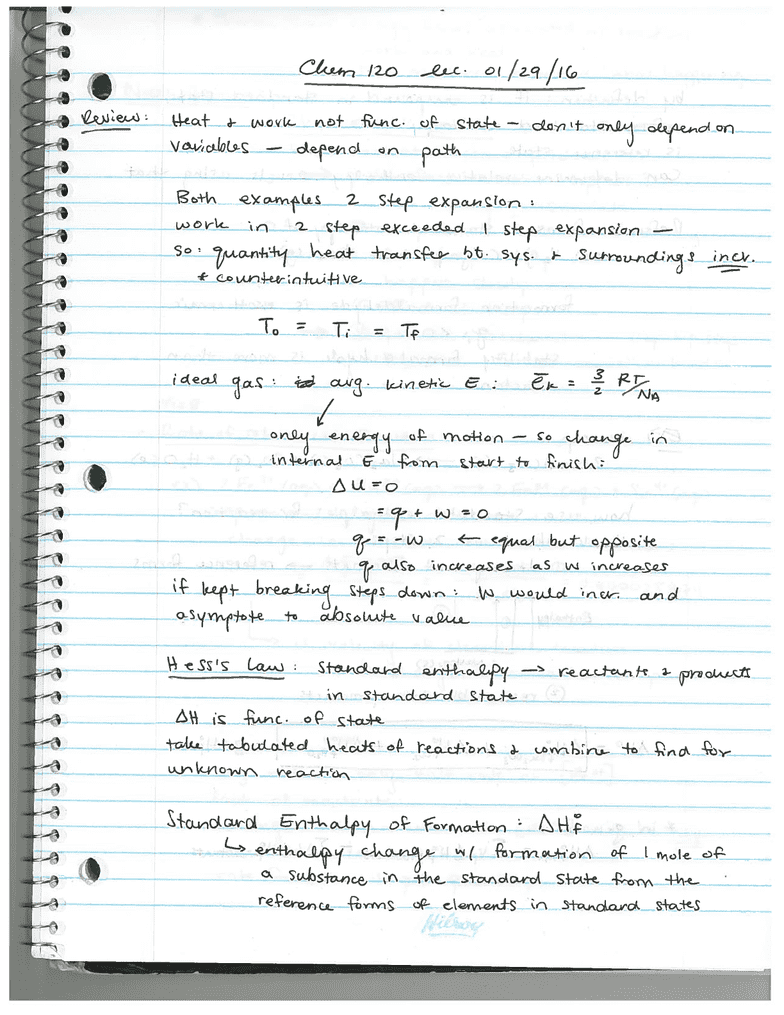 Chem 120 Lec. 01/29/16
Review: Heat & work not func. of state — don't only depend on
variables — depend on path
Both examples 2 step expansion:
work in 2 step exceeded 1 step expansion —
so: quantity heat transfer bt. sys. & surroundings incr.
* counterintuitive
T₀ = Tᵢ = T_f
ideal gas: avg. kinetic E: ēₖ = 3/2 RT/N_A
only energy of motion — so change in
internal E from start to finish:
ΔU = 0
= q + w = 0
q = -w ← equal but opposite
q also increases as w increases
if kept breaking steps down: W would incr. and
asymptote to absolute value
Hess's Law: Standard enthalpy → reactants & products
in standard state
ΔH is func. of state
take tabulated heats of reactions & combine to find for
unknown reaction
Standard Enthalpy of Formation: ΔH_f°
↳ enthalpy change w/ formation of 1 mole of
a substance in the standard state from the
reference forms of elements in standard states
Hilroy